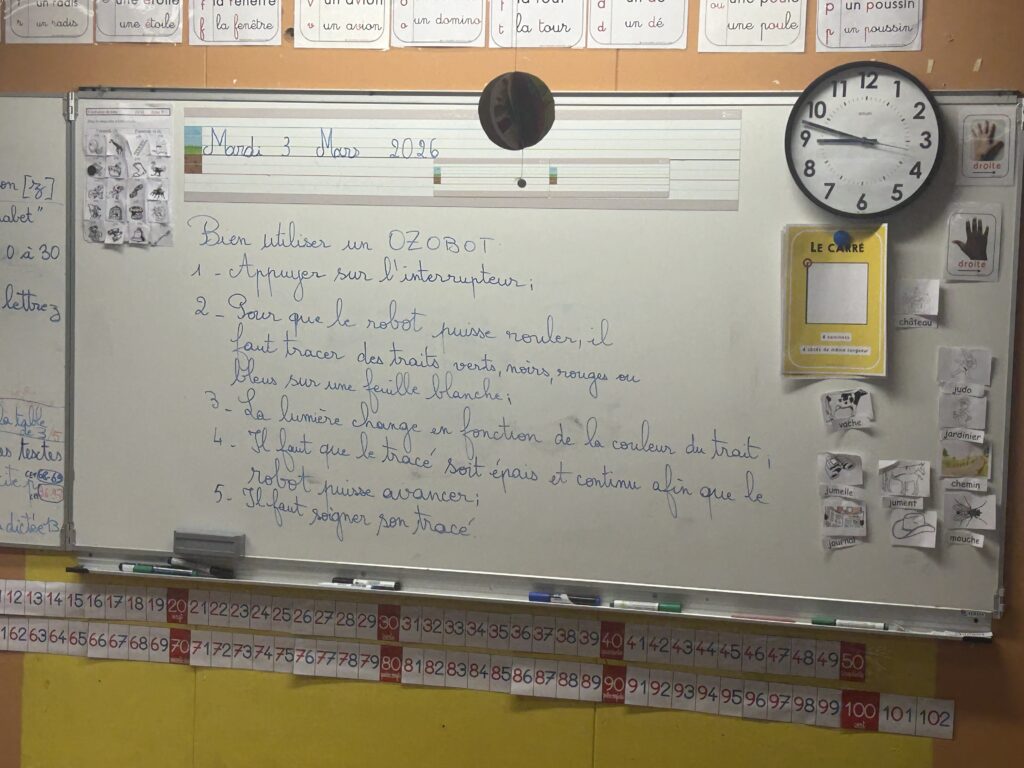 un radis
r un radis
une étoile
une étoile
f la fenêtre
f la fenêtre
v un avion
v un avion
o un domino
o un domino
t la tour
t la tour
d un dé
d un dé
ou une poule
une poule
p un poussin
p un poussin
Mardi 3 Mars 2026
Bien utiliser un OZOBOT:
1 - Appuyer sur l'interrupteur;
2 - Pour que le robot puisse rouler, il
faut tracer des traits verts, noirs, rouges ou
bleus sur une feuille blanche;
3 - La lumière change en fonction de la couleur du trait;
4 - Il faut que le tracé soit épais et continu afin que le
robot puisse avancer;
5 - Il faut soigner son tracé
on [z]
abet"
0 à 30
lettre z
la table
de 3
as textes
dictée 13
12 1 2 3 4 5 6 7 8 9 10 11
droite
droite
LE CARRÉ
4 sommets
4 côtés de même longueur
château
vache
jumelle
journal
jument
judo
jardinier
chemin
mouche
12 13 14 15 16 17 18 19 20 21 22 23 24 25 26 27 28 29 30 31 32 33 34 35 36 37 38 39 40 41 42 43 44 45 46 47 48 49 50
62 63 64 65 66 67 68 69 70 71 72 73 74 75 76 77 78 79 80 81 82 83 84 85 86 87 88 89 90 91 92 93 94 95 96 97 98 99 100 101 102